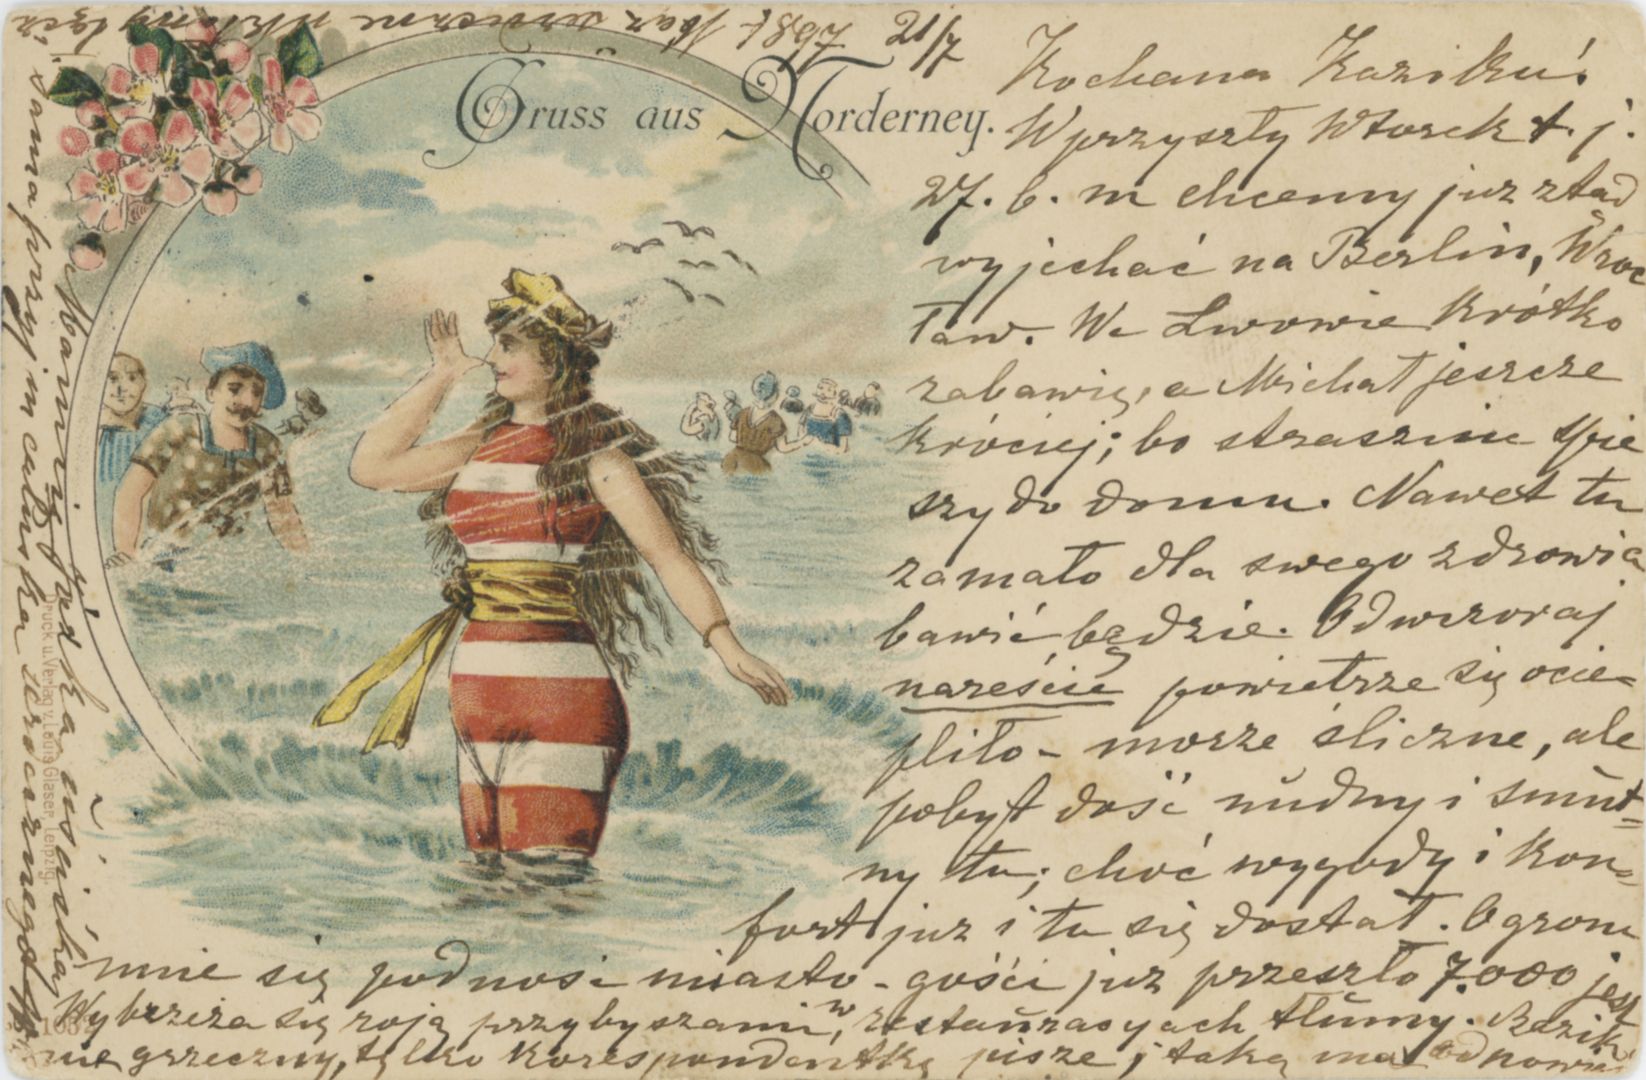 21/7 1897
Gruss aus Norderney.
Kochana Kaziku!
W przyszły Wtorek t. j.
27. b. m chcemy już ztąd
wyjechać na Berlin, Wroc
ław. We Lwowie krótko
zabawię, a Michał jeszcze
króciej; bo strasznie spie
szy do domu. Nawet tu
zamało dla swego zdrowia
bawić będzie. Odwczoraj
nareście powietrze się ocie-
pliło - morze śliczne, ale
pobyt dość nudny i smut-
ny tu; choć wygody i kon-
fort już i tu się dostał. Ogrom
mnie się podnosi miasto - gości już przeszło 7.000 jest
Wybrzeża się roją przybyszami, w restauracyach tłumy. Bezik
nie grzeczny, tylko korespondentkę pisze; taką ma odpowie
Druck u. Verlag v. Louis Glaser, Leipzig.